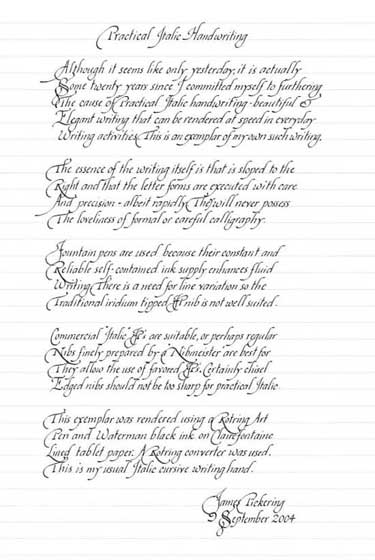 Practical Italic Handwriting
Although it seems like only yesterday, it is actually
Some twenty years since I committed myself to furthering
The cause of Practical Italic handwriting - beautiful &
Elegant writing that can be rendered at speed in everyday
Writing activities. This is an exemplar of my own such writing.
The essence of the writing itself is that is sloped to the
Right and that the letter forms are executed with care
And precision - albeit rapidly. They will never possess
The loveliness of formal or careful calligraphy.
Fountain pens are used because their constant and
Reliable self-contained ink supply enhances fluid
Writing. There is a need for line variation so the
Traditional iridium tipped FP nib is not well suited.
Commercial "Italic" FPs are suitable, or perhaps regular
Nibs finely prepared by a Nibmeister are best for
They allow the use of favored FPs. Certainly chisel
Edged nibs should not be too sharp for practical Italic.
This exemplar was rendered using a Rotring Art
Pen and Waterman black ink on Clairefontaine
Lined tablet paper. A Rotring converter was used.
This is my usual Italic cursive writing hand.
James Pickering
9 September 2004